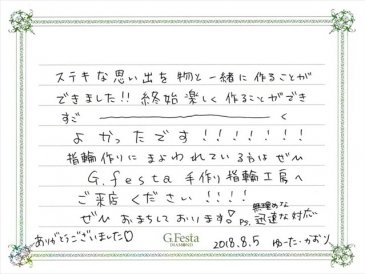 ステキな思い出を物と一緒に作ることが
できました!! 終始楽しく作ることができ
すご────────────く
よかったです!!!!!!!
指輪作りにまよわれている方はぜひ
G.festa 手作り指輪工房へ
ご来店ください!!!!
ぜひおまちしております♡
Ps. 無理のな 迅速な対応
ありがとうございました♡
G.Festa
DIAMOND
2018.8.5 ゆーた・かおり